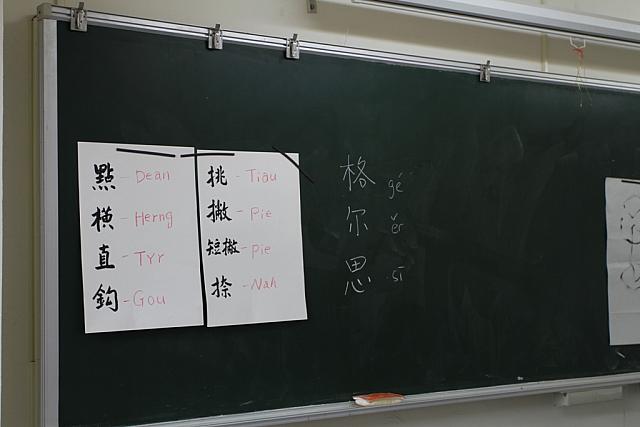 點-Dean
橫-Herng
直-Tyr
鈎-Gou
挑-Tiau
撇-Pie
短撇-pie
捺-Nah
格 gé
尔 ěr
思 sī